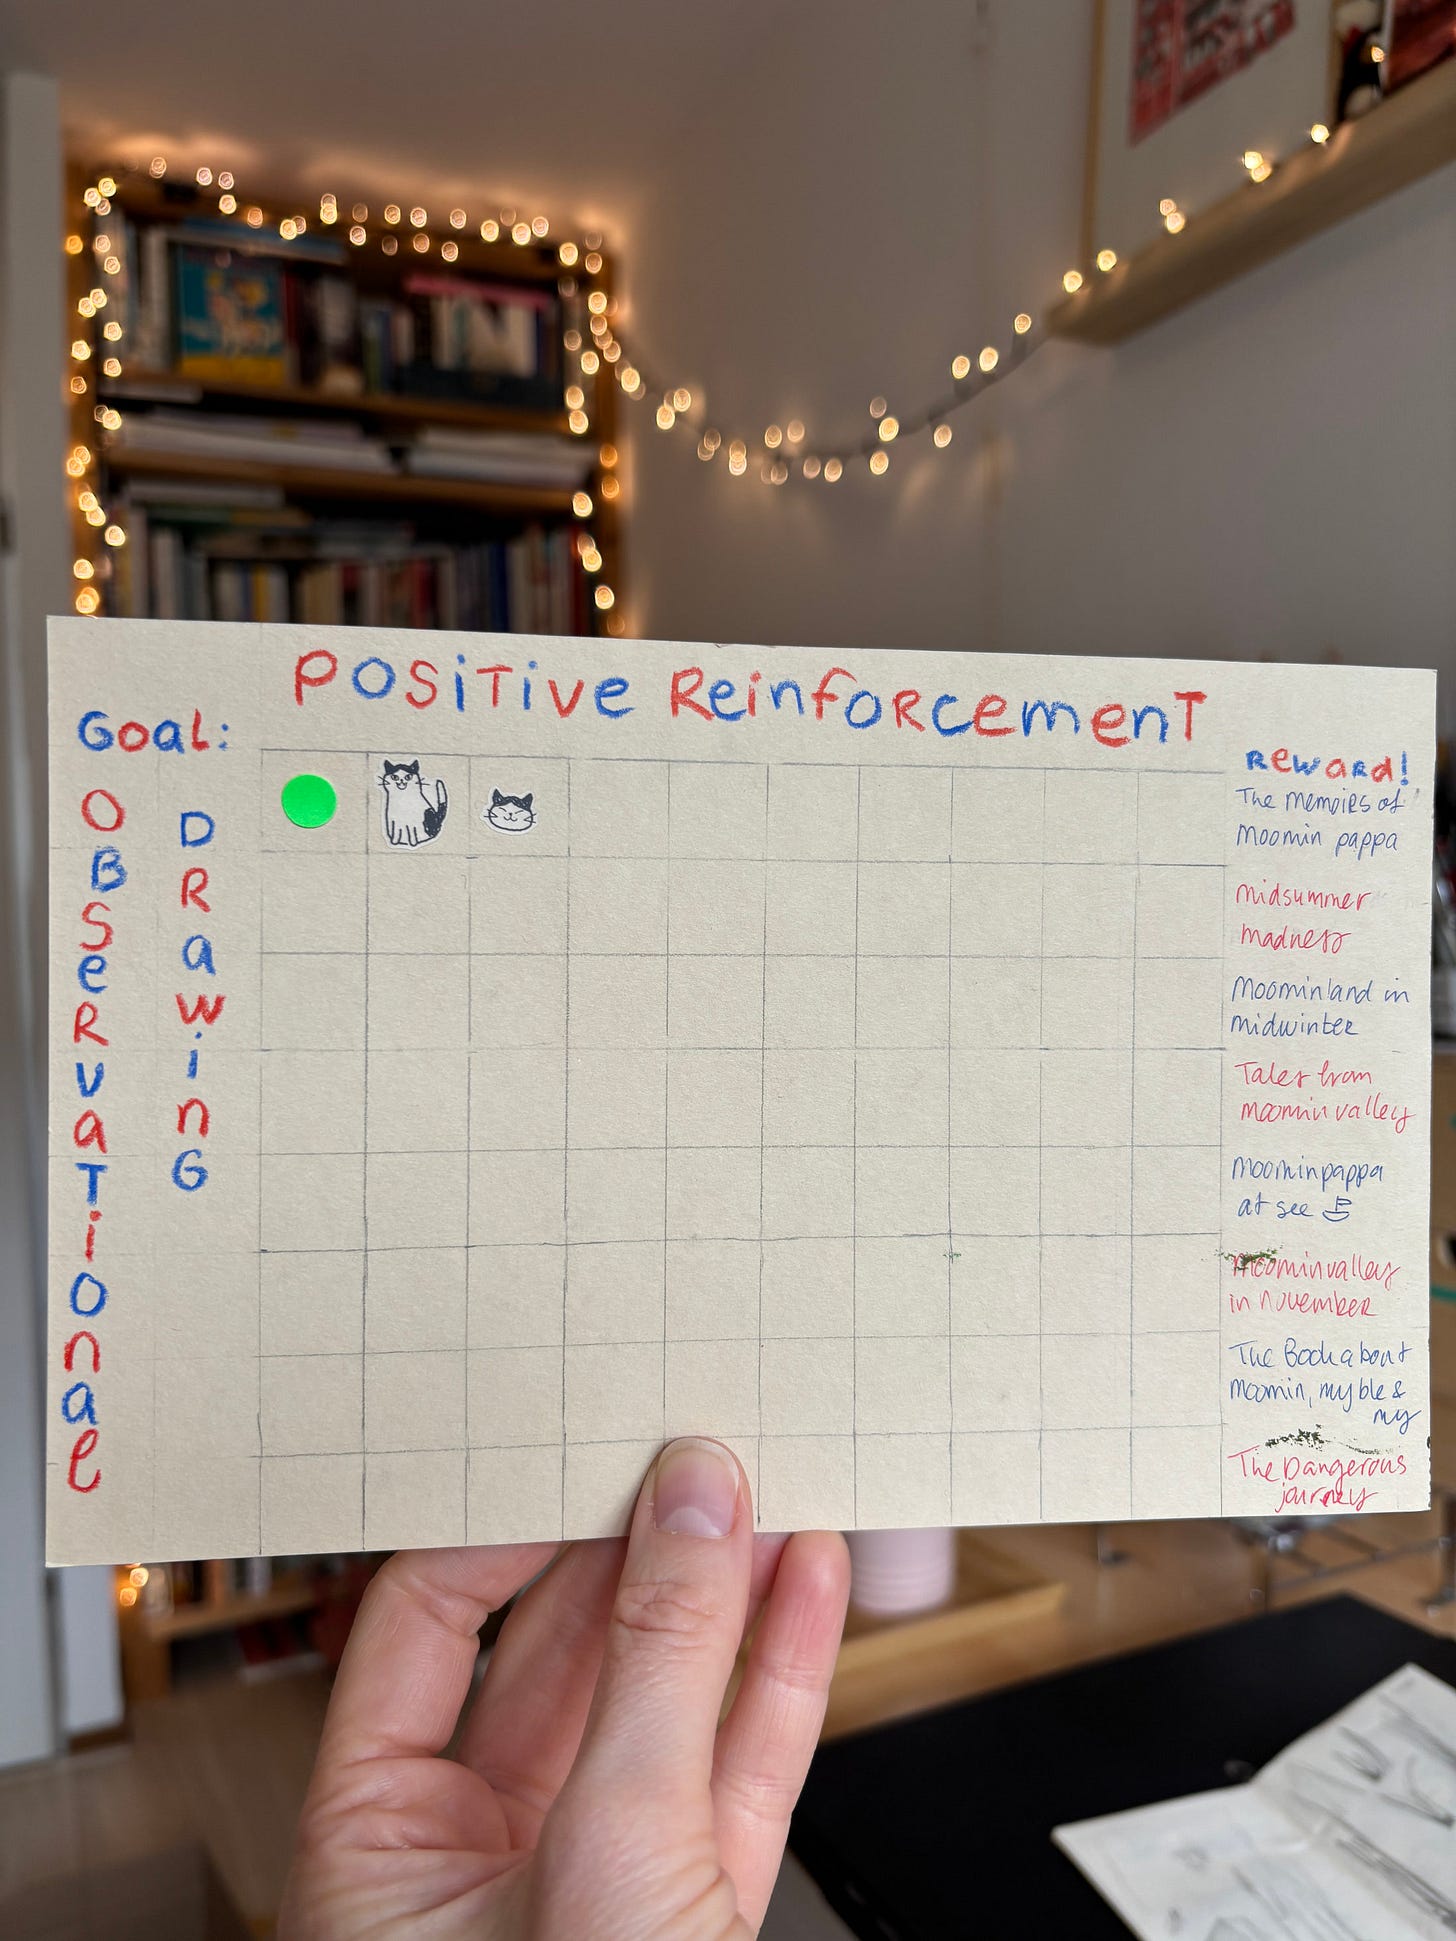 Positive Reinforcement
Goal:
Observational
Drawing
Reward!
The memoirs of
Moomin pappa
midsummer
madness
Moominland in
midwinter
Tales from
moomin valley
moominpappa
at see
Moominvalley
in november
The Book about
moomin, myble &
my
The Dangerous
journey